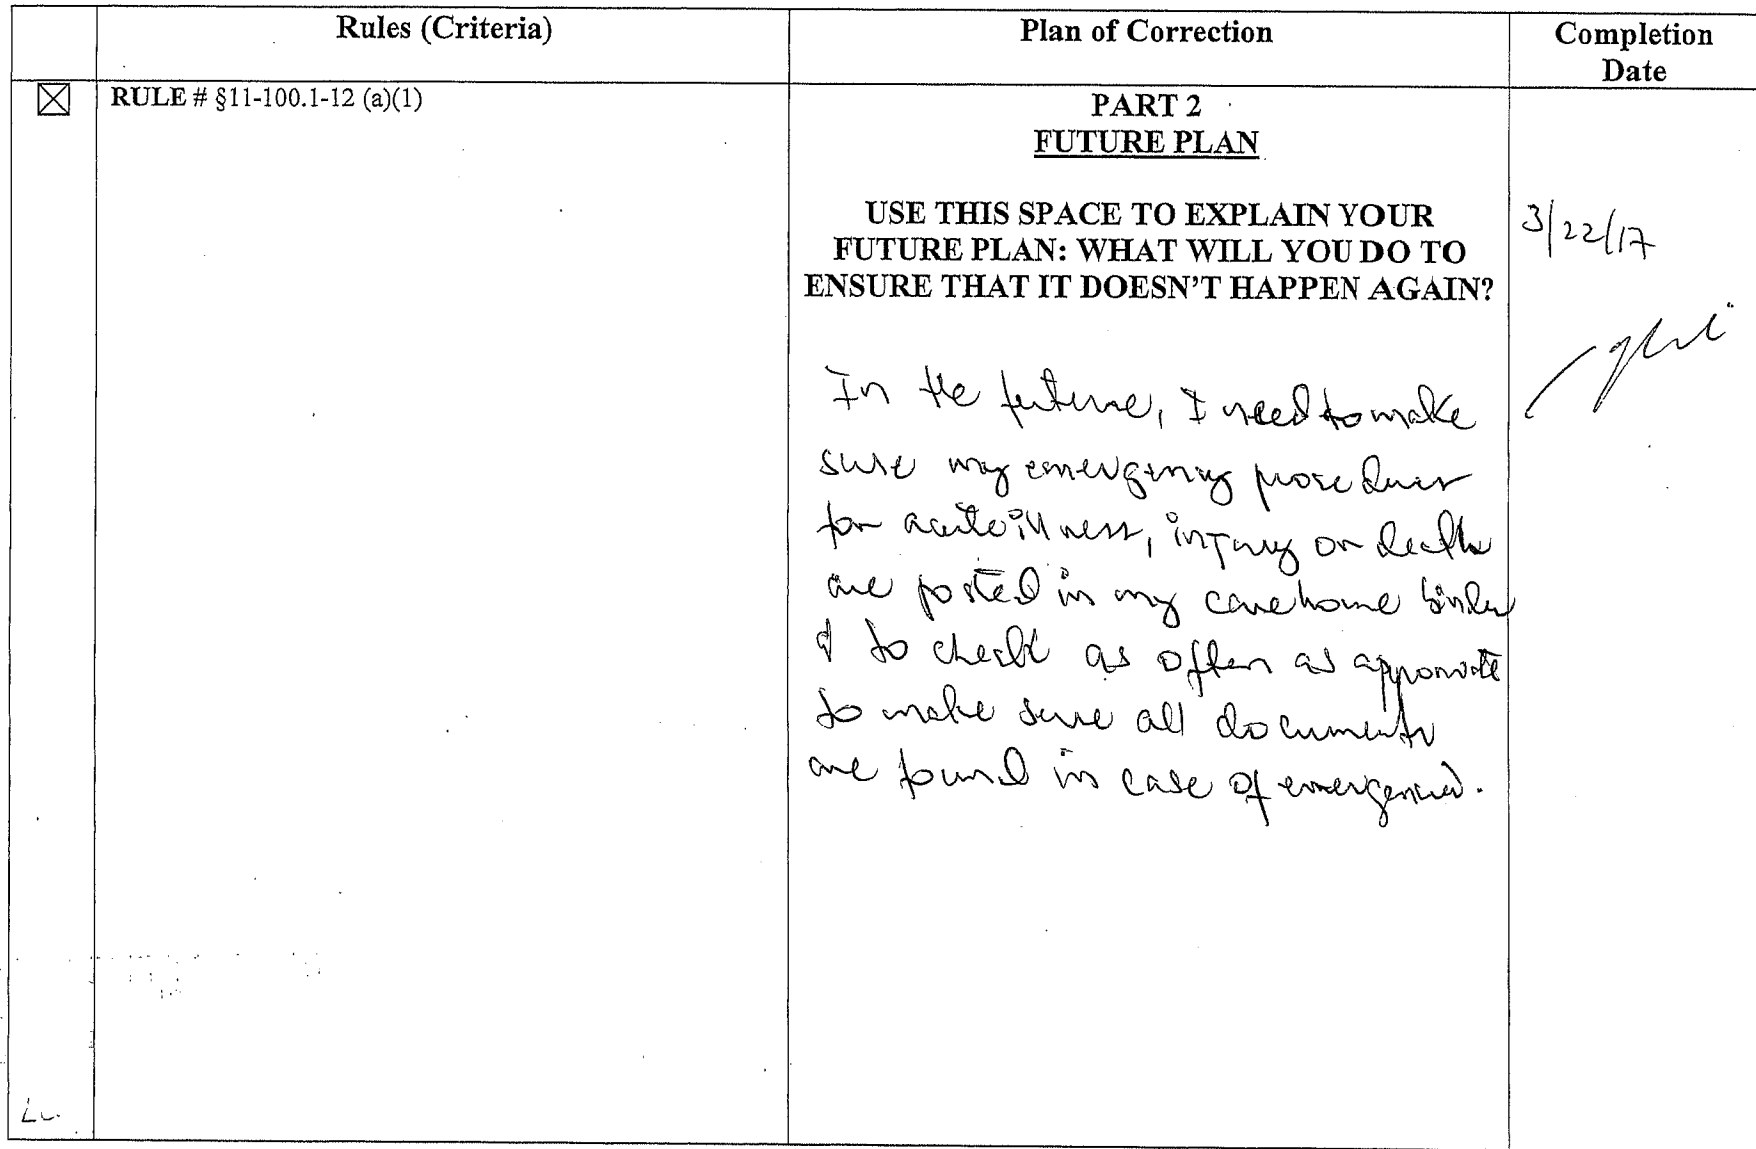 Rules (Criteria)
Plan of Correction
Completion
Date
☒
RULE # §11-100.1-12 (a)(1)
PART 2
FUTURE PLAN
USE THIS SPACE TO EXPLAIN YOUR
FUTURE PLAN: WHAT WILL YOU DO TO
ENSURE THAT IT DOESN'T HAPPEN AGAIN?
In the future, I need to make
sure my emergency procedures
for acute illness, injury or death
are posted in my carehome binder
& to check as often as
to make sure all documents
are found in case of emergencies.
3/22/17